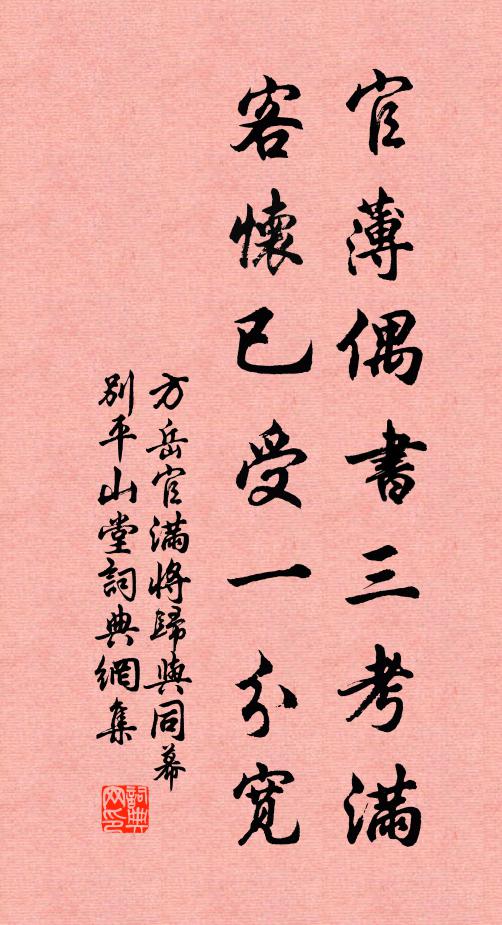 官薄偶書三考滿
客懷已受一分寬
方岳官滿將歸與同幕
別平山堂詞典網集
詞典网印